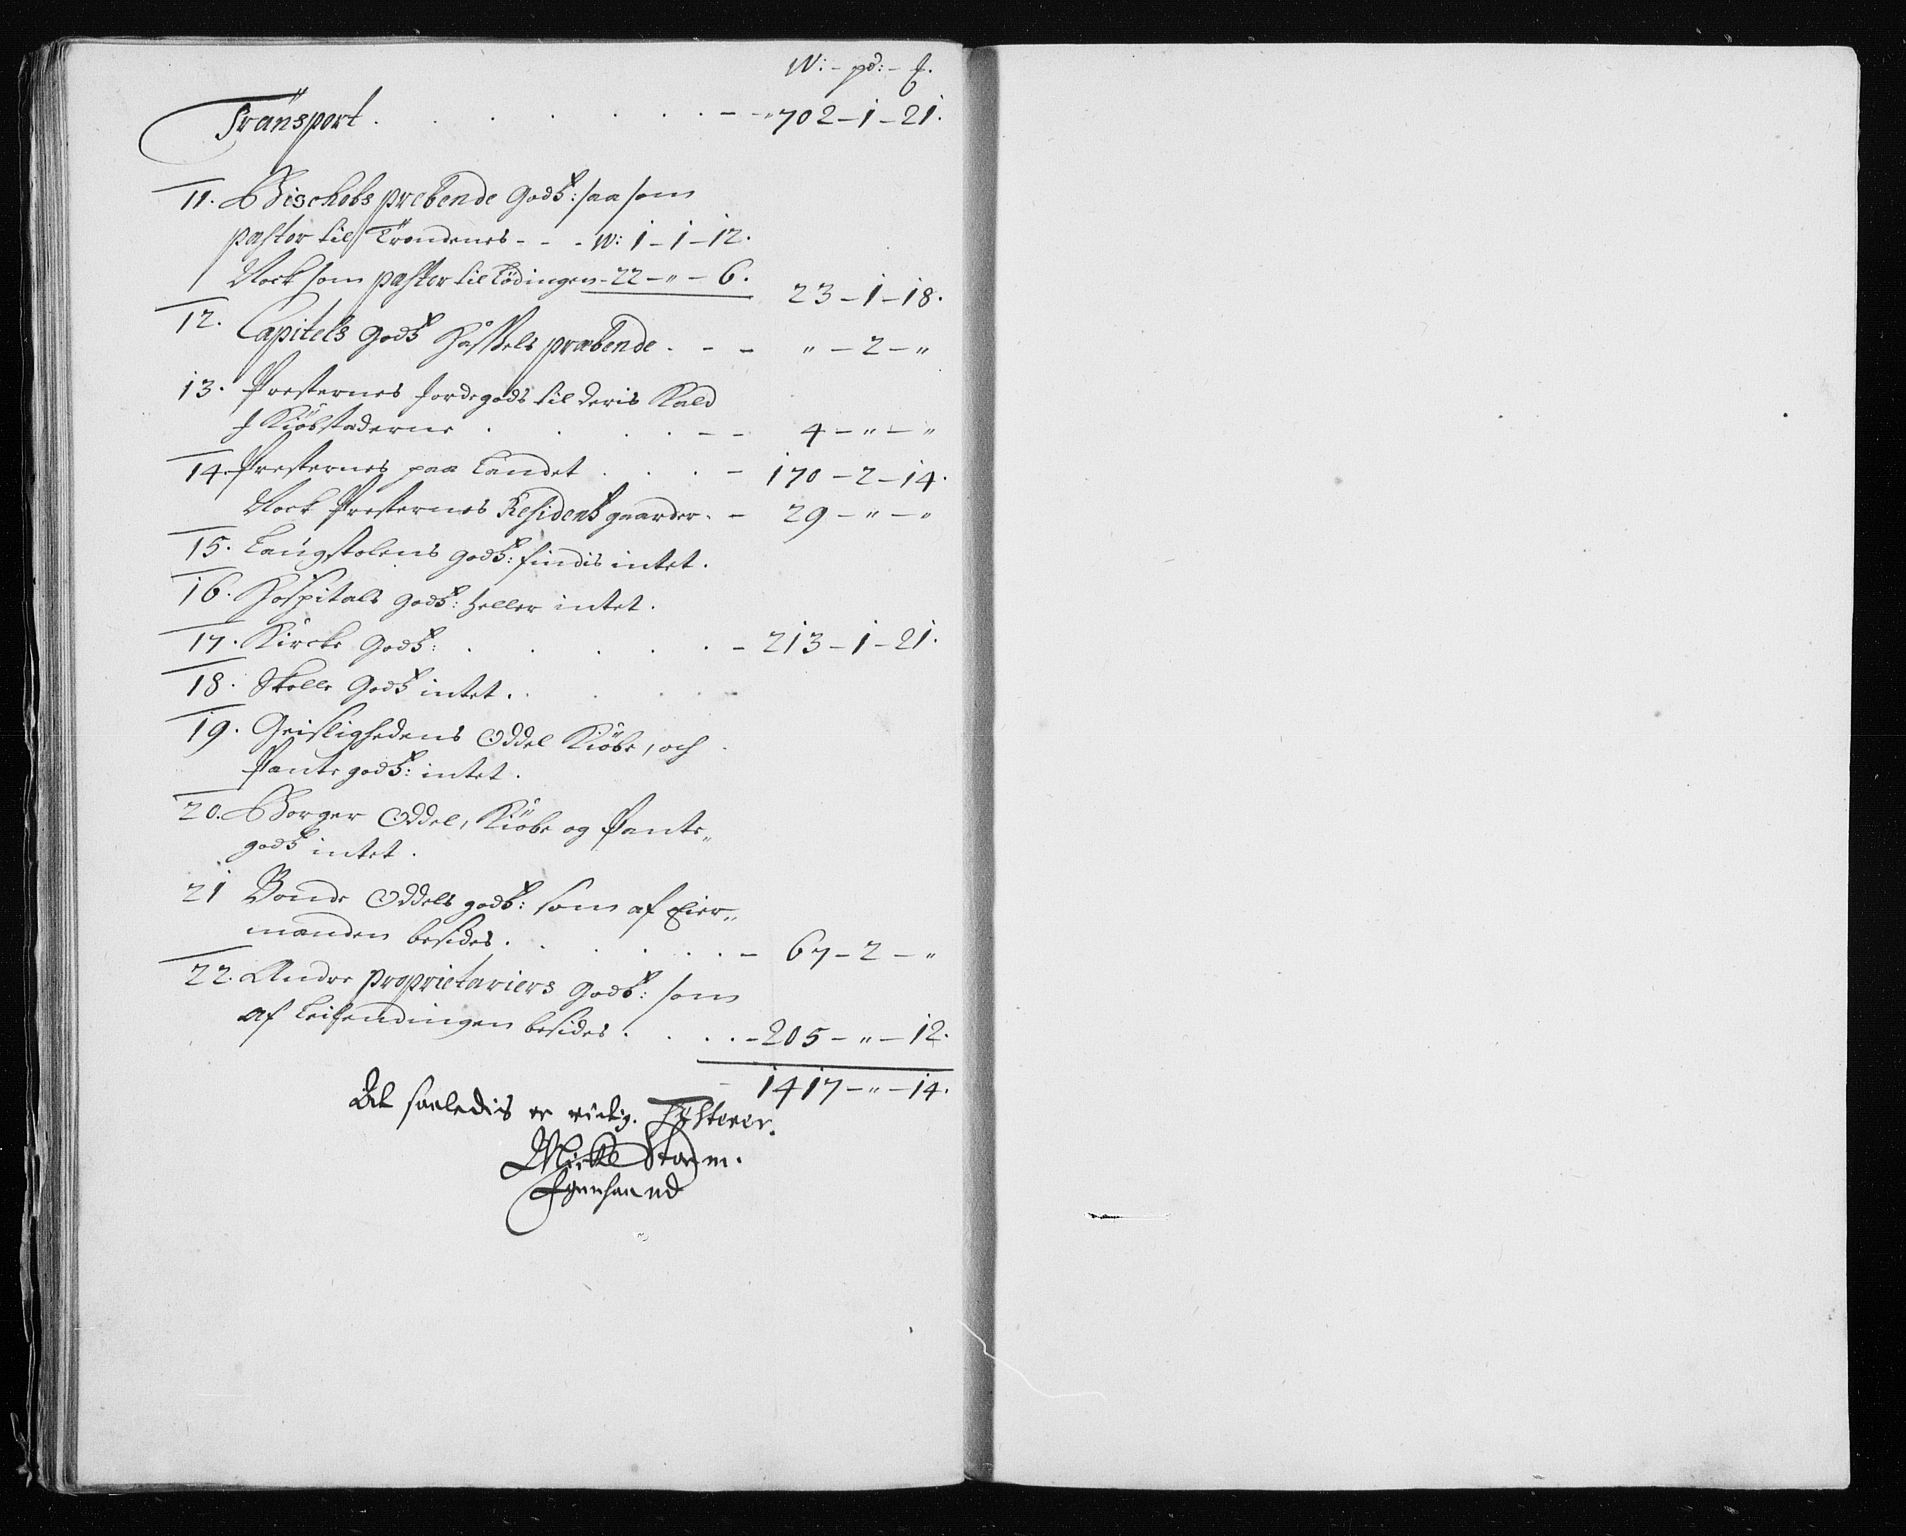 W: - pd: - ℔.
Transport . . . . . . . - - 702 - 1 - 21.
11. Bischobs prebende Godß: saa som
pastor til Trondenes - - - W: 1 - 1 - 12.
Nock som pastor til Lødingen - 22 - " - 6.
23 - 1 - 18.
12. Capitels Godß Haßels præbende . - - " - 2 - "
13. Presternes Jordegods til deris Kald
J Kiöbstæderne . . . . - - 4 - " - "
14. Presternes paa Landet . . . - 170 - 2 - 14.
Nock Presternes Residentz gaarder. - 29 - " - "
15. Laugstolens godß: findis intet.
16. Hospitals Godß: heller intet.
17. Kircke Godß: . . . . . - 213 - 1 - 21.
18. Skolle Godß intet.
19. Geistlighedens Oddel Kiöbe, och
Pante godß: intet.
20. Borger Oddel, Kiöbe og Pante„
godß intet.
21 Bonde Oddels godß: som af Eier„
manden besides. . . . . . - 67 - 2 - "
22. Andre Proprietariers Godß: som
af Leilendingen besides . . . . - 205 - " - 12.
1417 - " - 14.
Det saaledis er rictig. Tæsterer.
Mickel Storm.
Egenhaand